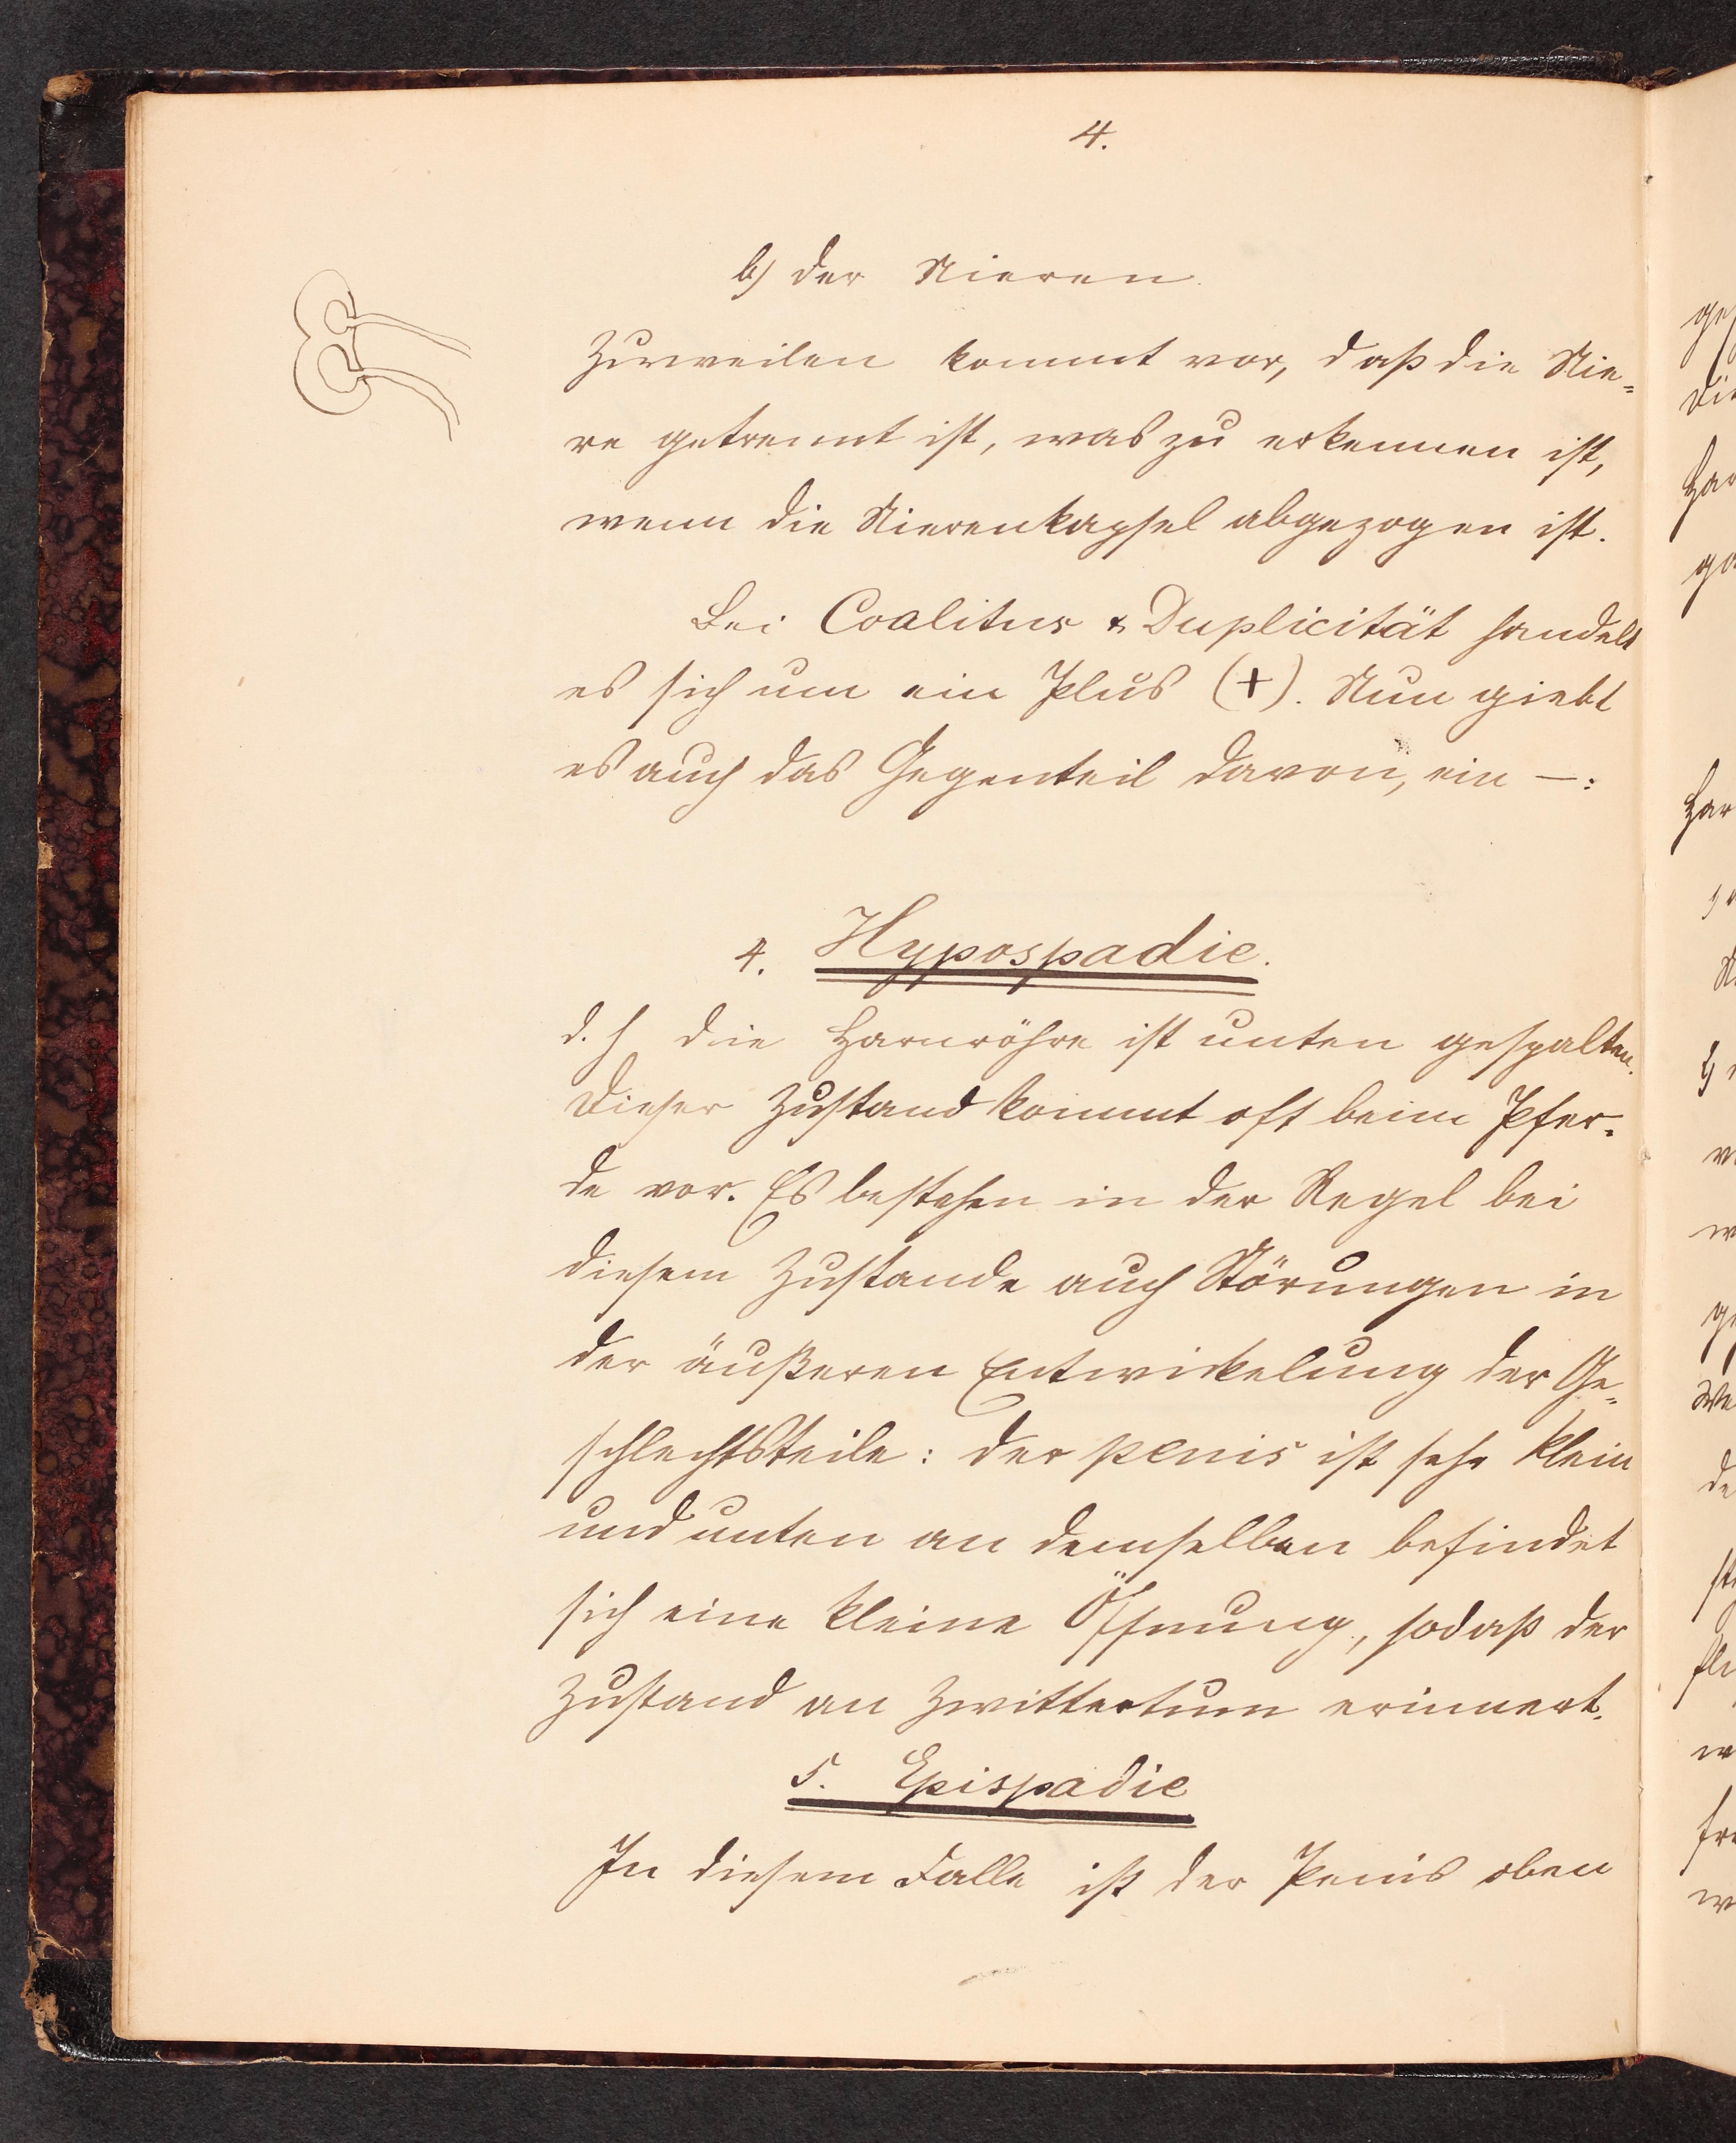 4.
b) der Nieren.
Zuweilen kommt vor, daß die Nie-
re getrennt ist, was zu erkennen ist,
wenn die Nierenkapsel abgezogen ist.
Bei Coalitus & Duplicität handelt
es sich um ein Plus (+). Nun giebt
es auch das Gegenteil davon, ein —:
4. Hypospadie.
d. h die Harnröhre ist unten gespalten.
Dieser Zustand kommt oft beim Pfer-
de vor. Es bestehen in der Regel bei
diesem Zustande auch Störungen in
der äußeren Entwickelung der Ge-
schlechtsteile: der penis ist sehr klein
und unten an demselben befindet
sich eine kleine Öffnung, sodaß der
Zustand an Zwittertum erinnert.
5. Epispadie
In diesem Falle ist der Penis oben